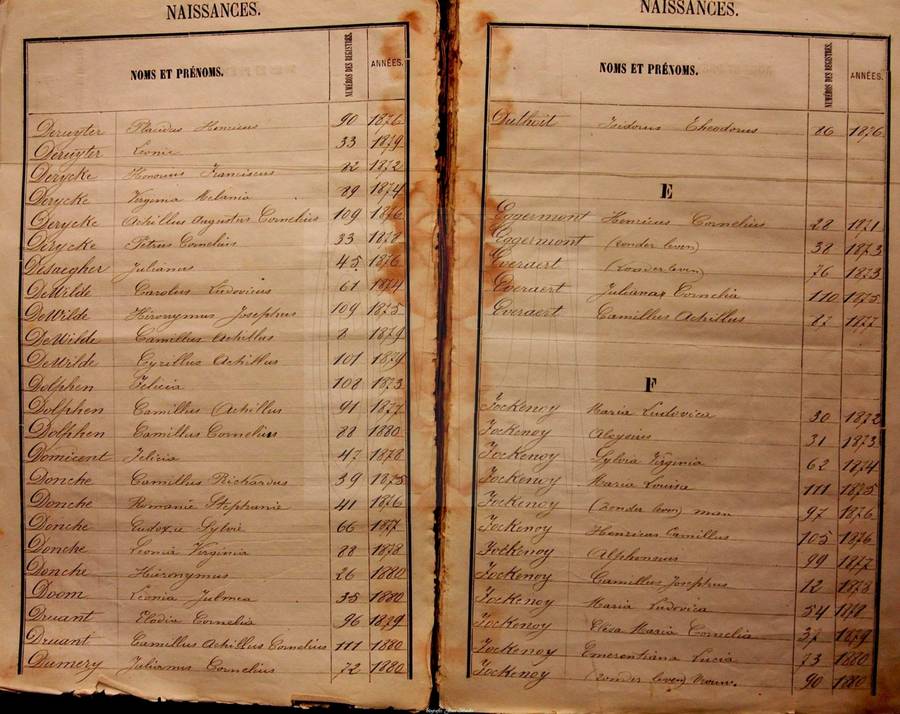 NAISSANCES.
NOMS ET PRÉNOMS. NUMÉROS DES REGISTRES. ANNÉES.
Deruyter Placidus Henricus 90 1876
Deruyter Leonie 33 1879
Derycke Honorius Franciscus 82 1872
Derycke Virginia Melania 29 1874
Derycke Achillus Augustus Cornelius 109 1876
Derycke Petrus Cornelius 33 1878
Desaegher Julianus 45 1876
DeWilde Carolus Ludovicus 61 1874
DeWilde Hieronymus Josephus 109 1875
DeWilde Camillus Achillus 1879
DeWilde Cyrillus Achillus 101 1879
Dolphen Felicia 108 1873
Dolphen Camillus Achillus 91 1877
Dolphen Camillus Cornelius 28 1880
Domicent Felicia 47 1878
Donche Camillus Richardus 39 1875
Donche Romanie Stephanie 41 1876
Donche Eudoxie Sylvie 66 1877
Donche Leonia Virginia 88 1878
Donche Hieronymus 26 1880
Doom Leonia Julmea 35 1880
Druant Elodia Cornelia 96 1879
Druant Camillus Achillus Cornelius 111 1880
Dumery Julianus Cornelius 72 1880
NAISSANCES.
NOMS ET PRÉNOMS. NUMÉROS DES REGISTRES. ANNÉES.
Duthoit Isidorus Theodorus 86 1876
E
Eggermont Henricus Cornelius 28 1871
Eggermont (zonder leven) 38 1873
Everaert (zonder leven) 76 1873
Everaert Juliana Cornelia 110 1875
Everaert Camillus Achillus 87 1877
F
Fockenoy Maria Ludovica 30 1872
Fockenoy Aloysius 31 1873
Fockenoy Sylvia Virginia 62 1874
Fockenoy Maria Louisa 111 1875
Fockenoy (zonder leven) man 97 1876
Fockenoy Henricus Camillus 105 1876
Fockenoy Alphonsus 99 1877
Fockenoy Camillus Josephus 12 1878
Fockenoy Maria Ludovica 54
Fockenoy Elisa Maria Cornelia 37 1879
Fockenoy Emerentiana Lucia 73 1880
Fockenoy (zonder leven) vrouw. 90 1880